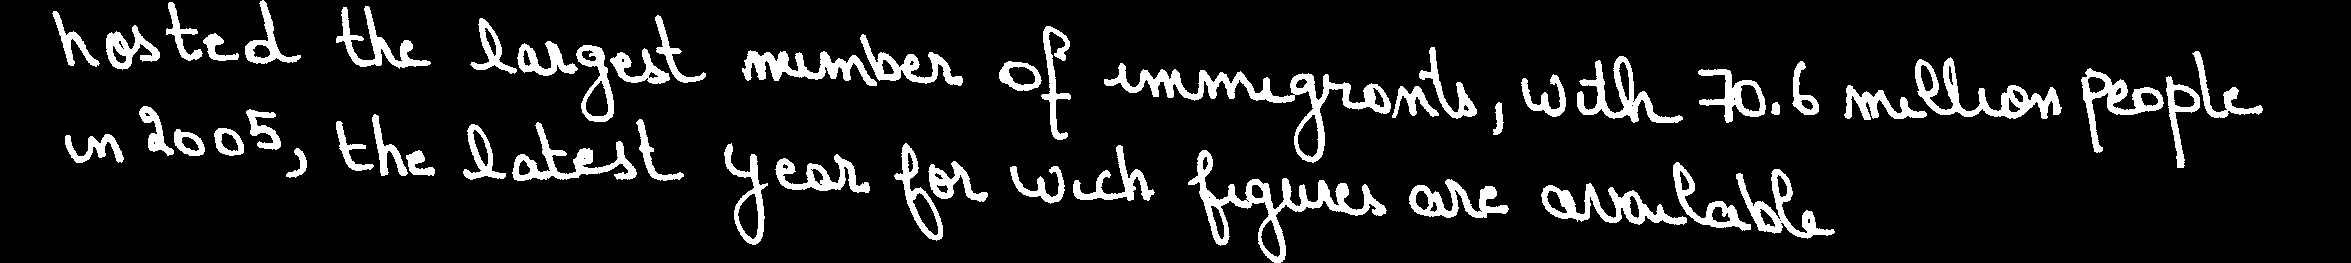 hosted the largest number of immigrants, with 70.6 million people
in 2005, the latest year for wich figures are available